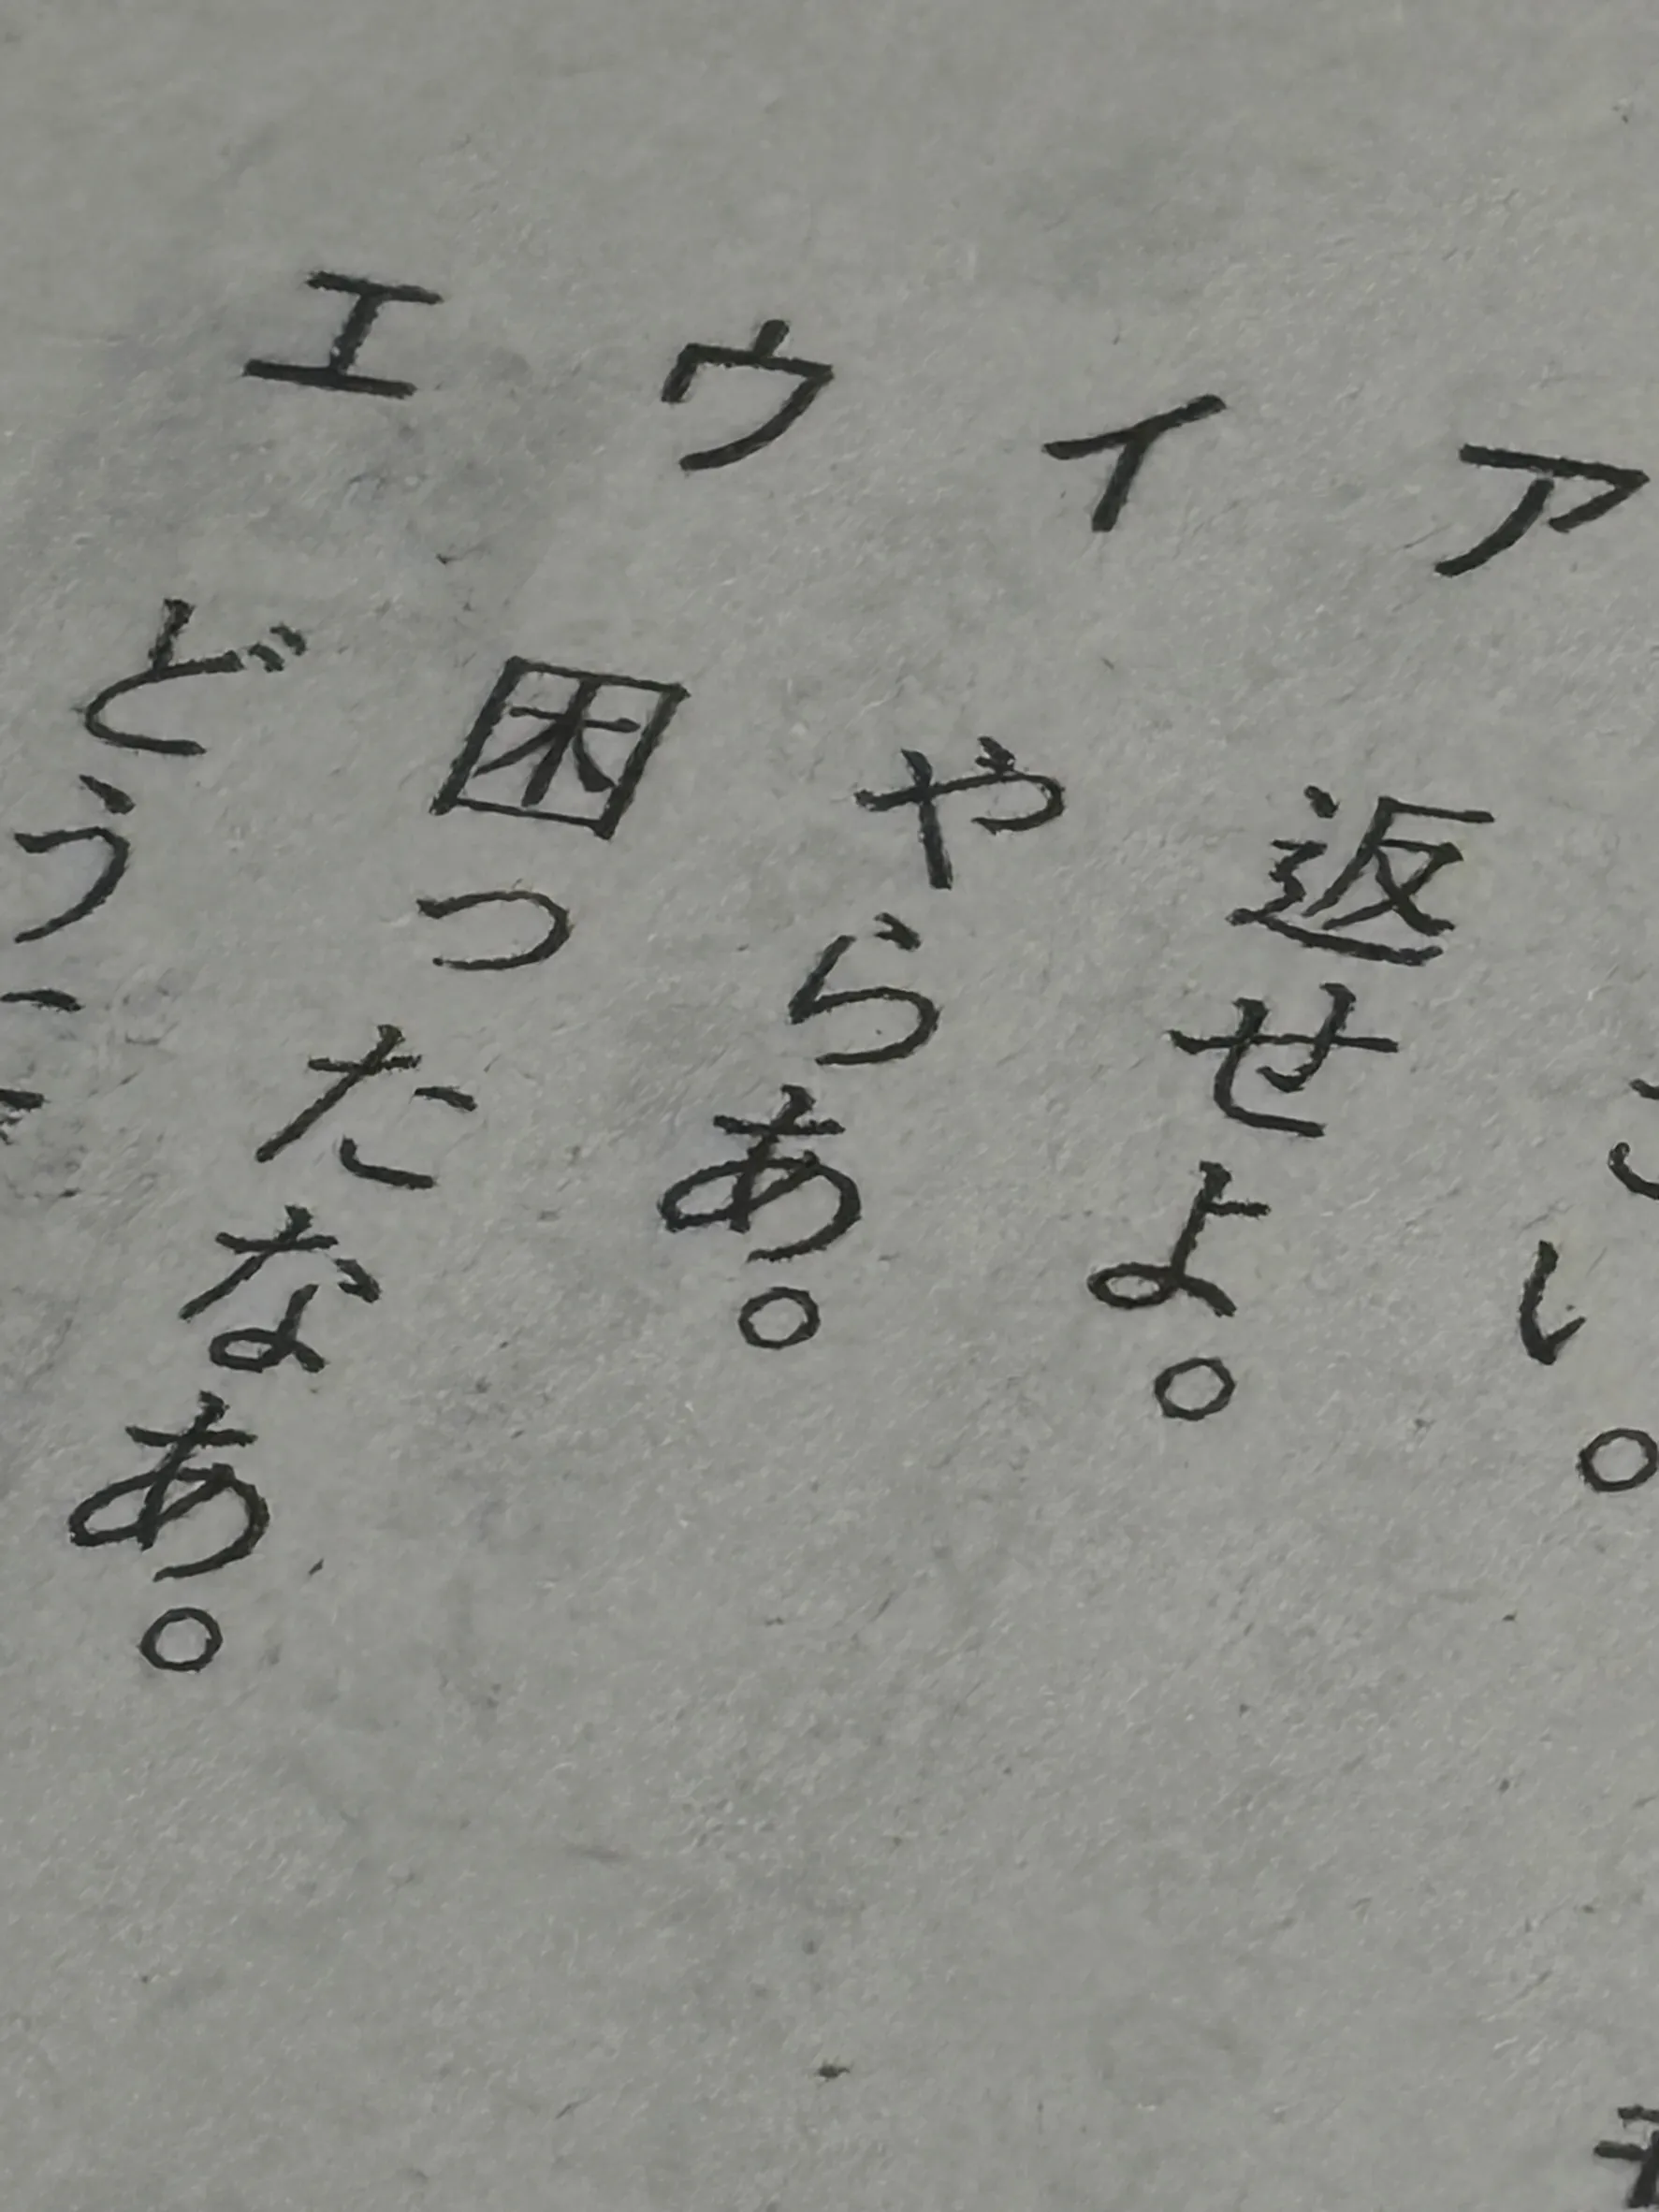 い。
ア 返せよ。
イ やらあ。
ウ 困ったなあ。
エ どう